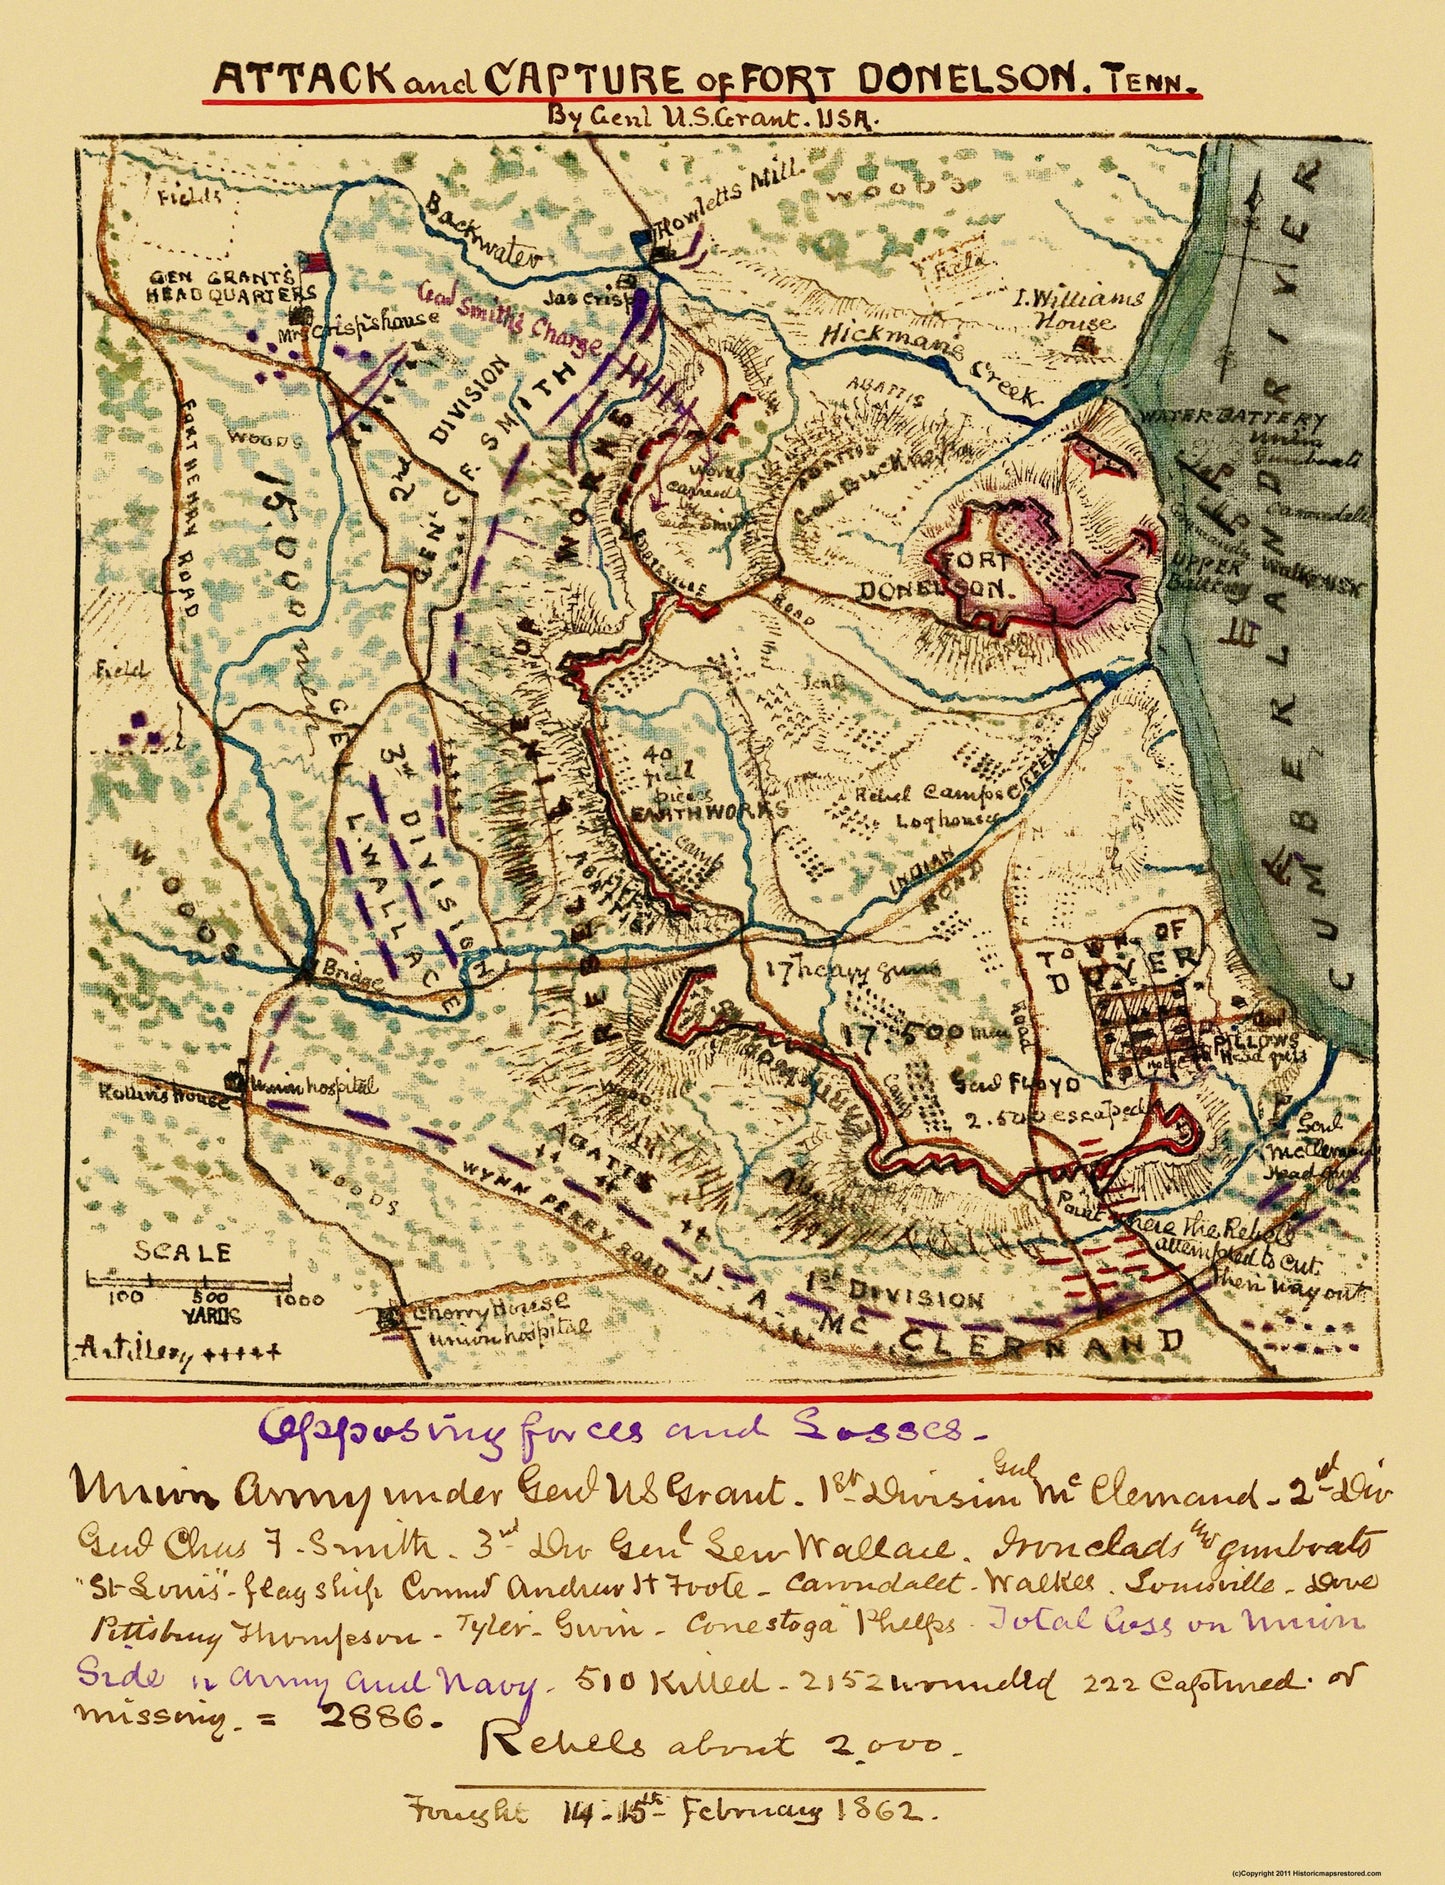 ATTACK and CAPTURE of FORT DONELSON. TENN.
By Genl U.S. Grant. USA.
Fields
Backwater
Howletts Mill.
WOODS
Field
GEN GRANT'S
HEADQUARTERS
Mrs Crisp's house
Jas Crisp
Genl Smith's Charge
I. Williams
House
Hickman's Creek
ABATTIS
ABATTIS
Genl Buckner
WATER BATTERY
Union
Gunboats
Carondelet
Commandr Walke USN
UPPER
Battery
CUMBERLAND RIVER
FORT HENRY ROAD
WOODS
15,000 men
2nd DIVISION
GEN. C. F. SMITH
WORKS
Works
carried
Genl Smith
FORT
DONELSON.
ROAD
Field
Tents
40
field
pieces
EARTHWORKS
Camp
Rebel Camps
Log houses
INDIAN CREEK
ROAD
GEN
L. WALLACE
3rd DIVISION
WOODS
Bridge
17 heavy guns
17.500 men
Genl FLOYD
2.500 escaped
Camp
Road
TOWN OF
DOVER
Genl
PILLOWS
Head qrs
Rollins house
Union hospital
ABATTIS
WOODS
WYNN FERRY ROAD
Genl
McClernand
Head qrs
Point where the Rebels
attempted to cut
their way out
1st DIVISION
J. A. McCLERNAND
Cherry House
union hospital
SCALE
100 500 1000
YARDS
Artillery +++++
Opposing forces and Losses.
Union Army under Genl US Grant. 1st Division Genl McClernand - 2nd Div
Genl Chas F. Smith. 3rd Div Genl Lew Wallace. Ironclads and gunboats
"St Louis" - flag ship Comd Andrew H Foote - Carondalet - Walker. Louisville - Dove
Pittsburg Thompson - Tyler - Gwin - Conestoga Phelps. Total loss on Union
Side in army and Navy. 510 Killed - 2152 wounded 222 Captured. or
missing. = 2886.
Rebels about 2,000.
Fought 14-15th February 1862.
(c)Copyright 2011 Historicmapsrestored.com